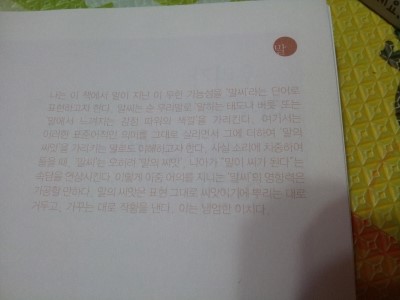 나는 이 책에서 말이 지닌 이 무한 가능성을 '말씨'라는 단어로
표현하고자 한다. 말씨는 순 우리말로 '말하는 태도나 버릇' 또는
'말에서 느껴지는 감정 따위의 색깔'을 가리킨다. 여기서는
이러한 표준어적인 의미를 그대로 살리면서 그에 더하여 '말의
씨앗'을 가리키는 말로도 이해하고자 한다. 사실 소리에 치중하여
들을 때, '말씨'는 오히려 '말의 씨앗', 나아가 '말이 씨가 된다'는
속담을 연상시킨다. 이렇게 이중 어의를 지니는 '말씨'의 영향력은
가공할 만하다. '말의 씨앗'은 표현 그대로 씨앗이기에 뿌리는 대로
거두고, 가꾸는 대로 식물을 낸다. 이는 냉엄한 이치다.